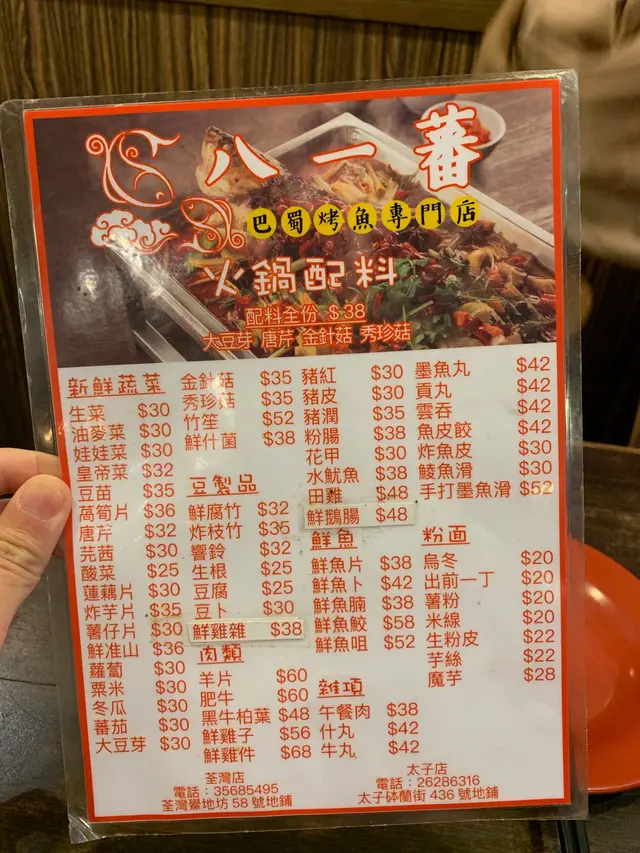 八一蕃
巴蜀烤魚專門店
火鍋配料
配料全份 $38
大豆芽 唐芹 金針菇 秀珍菇
新鮮蔬菜
生菜 $30
油麥菜 $30
娃娃菜 $30
皇帝菜 $32
豆苗 $35
萵筍片 $36
唐芹 $32
芫茜 $30
酸菜 $25
蓮藕片 $30
炸芋片 $35
薯仔片 $30
鮮准山 $36
蘿蔔 $30
粟米 $30
冬瓜 $30
蕃茄 $30
大豆芽 $30
金針菇 $35
秀珍菇 $35
竹笙 $52
鮮什菌 $38
豆製品
鮮腐竹 $32
炸枝竹 $35
響鈴 $32
生根 $25
豆腐 $25
豆卜 $30
鮮雞雜 $38
肉類
羊片 $60
肥牛 $60
黑牛柏葉 $48
鮮雞子 $56
鮮雞件 $68
豬紅 $30
豬皮 $30
豬潤 $35
粉腸 $38
花甲 $30
水魷魚 $38
田雞 $48
鮮鵝腸 $48
鮮魚
鮮魚片 $38
鮮魚卜 $42
鮮魚腩 $38
鮮魚鮫 $58
鮮魚咀 $52
雜項
午餐肉 $38
什丸 $42
牛丸 $42
墨魚丸 $42
貢丸 $42
雲吞 $42
魚皮餃 $42
炸魚皮 $30
鯪魚滑 $30
手打墨魚滑 $52
粉面
烏冬 $20
出前一丁 $20
薯粉 $20
米線 $20
生粉皮 $22
芋絲 $22
魔芋 $28
荃灣店
電話：35685495
荃灣曾地坊 58 號地鋪
太子店
電話：26286316
太子砵蘭街 436 號地鋪